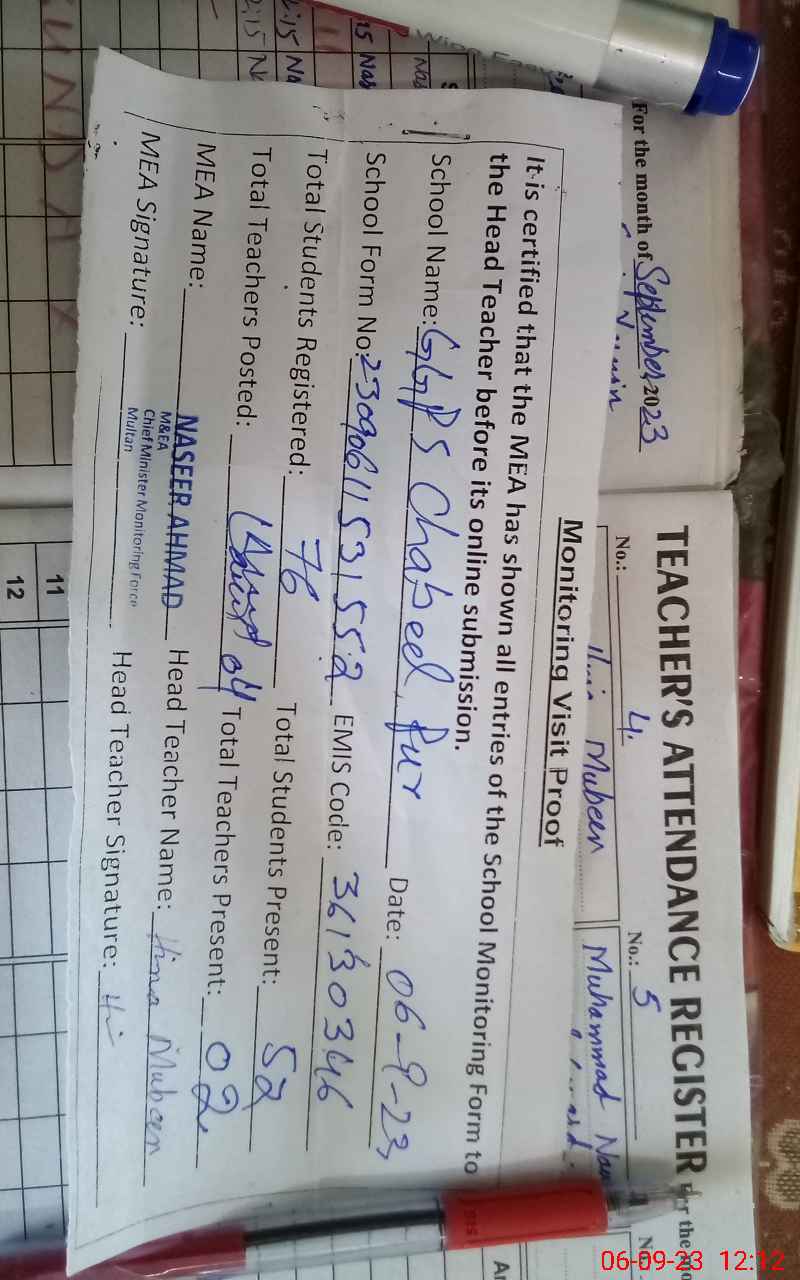 For the month of September 2023
TEACHER'S ATTENDANCE REGISTER
No.: 4. No.: 5
Mubeen Muhammad
Monitoring Visit Proof
It is certified that the MEA has shown all entries of the School Monitoring Form to
the Head Teacher before its online submission.
School Name: GGPS Chabeel Pur Date: 06-9-23
School Form No: EMIS Code: 36130346
Total Students Registered: 76 Total Students Present: 52
Total Teachers Posted: 04 Total Teachers Present: 02
MEA Name: NASEER AHMAD Head Teacher Name: Hina Mubeen
M&EA
Chief Minister Monitoring Force
Multan
MEA Signature: Head Teacher Signature:
11
12
06-09-23 12:12